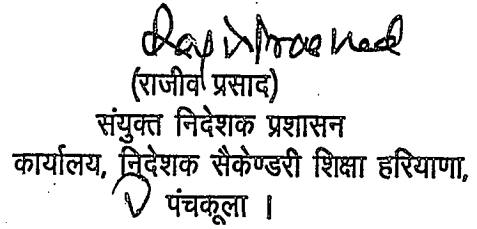 (राजीव प्रसाद)
संयुक्त निदेशक प्रशासन
कार्यालय, निदेशक सैकेण्डरी शिक्षा हरियाणा,
पंचकूला ।